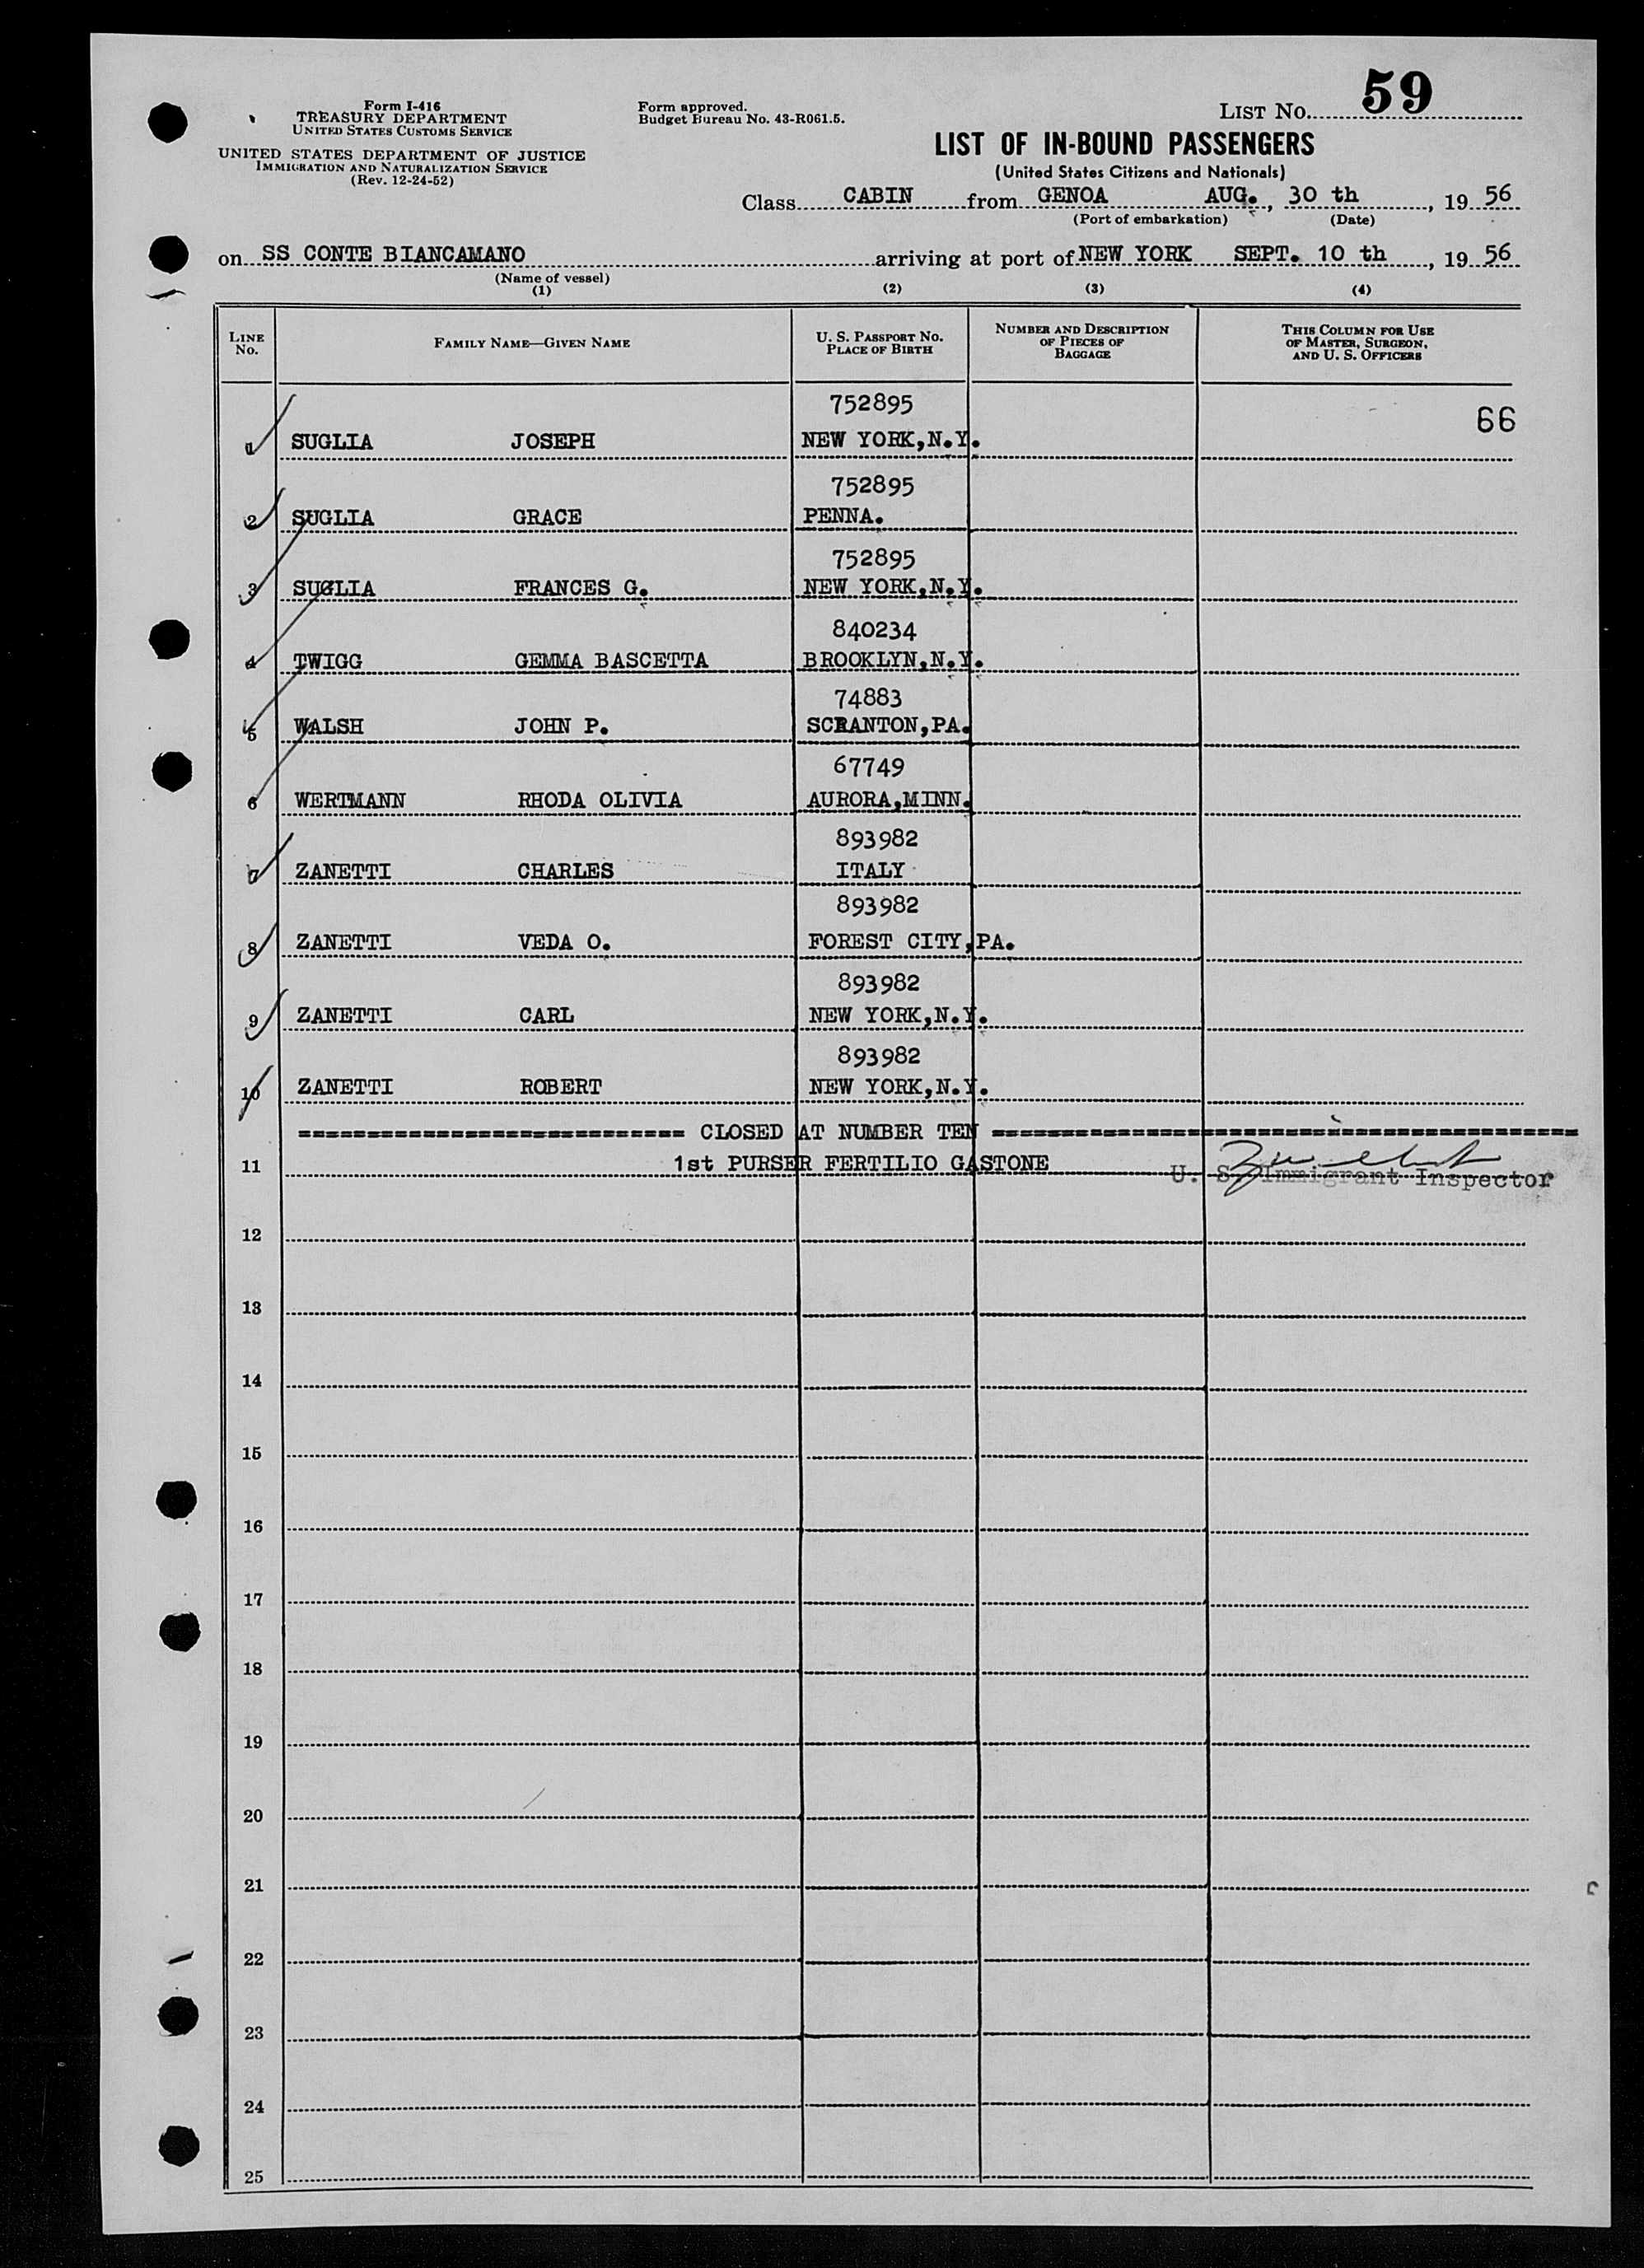 Form I-416
TREASURY DEPARTMENT
UNITED STATES CUSTOMS SERVICE
UNITED STATES DEPARTMENT OF JUSTICE
IMMIGRATION AND NATURALIZATION SERVICE
(Rev. 12-24-52)
Form approved.
Budget Bureau No. 43-R061.5.
LIST NO. 59
LIST OF IN-BOUND PASSENGERS
(United States Citizens and Nationals)
Class CABIN from GENOA AUG., 30 th, 19 56
(Port of embarkation) (Date)
on SS CONTE BIANCAMANO arriving at port of NEW YORK SEPT. 10 th, 19 56
(Name of vessel)
(1) (2) (3) (4)
LINE No. FAMILY NAME—GIVEN NAME U. S. PASSPORT NO. PLACE OF BIRTH NUMBER AND DESCRIPTION OF PIECES OF BAGGAGE THIS COLUMN FOR USE OF MASTER, SURGEON, AND U. S. OFFICERS
752895 66
1 SUGLIA JOSEPH NEW YORK,N.Y.
752895
2 SUGLIA GRACE PENNA.
752895
3 SUGLIA FRANCES G. NEW YORK,N.Y.
840234
4 TWIGG GEMMA BASCETTA BROOKLYN,N.Y.
74883
5 WALSH JOHN P. SCRANTON,PA.
67749
6 WERTMANN RHODA OLIVIA AURORA,MINN.
893982
7 ZANETTI CHARLES ITALY
893982
8 ZANETTI VEDA O. FOREST CITY,PA.
893982
9 ZANETTI CARL NEW YORK,N.Y.
893982
10 ZANETTI ROBERT NEW YORK,N.Y.
============================ CLOSED AT NUMBER TEN ============================
11 1st PURSER FERTILIO GASTONE U. S. Immigrant Inspector
12
13
14
15
16
17
18
19
20
21
22
23
24
25